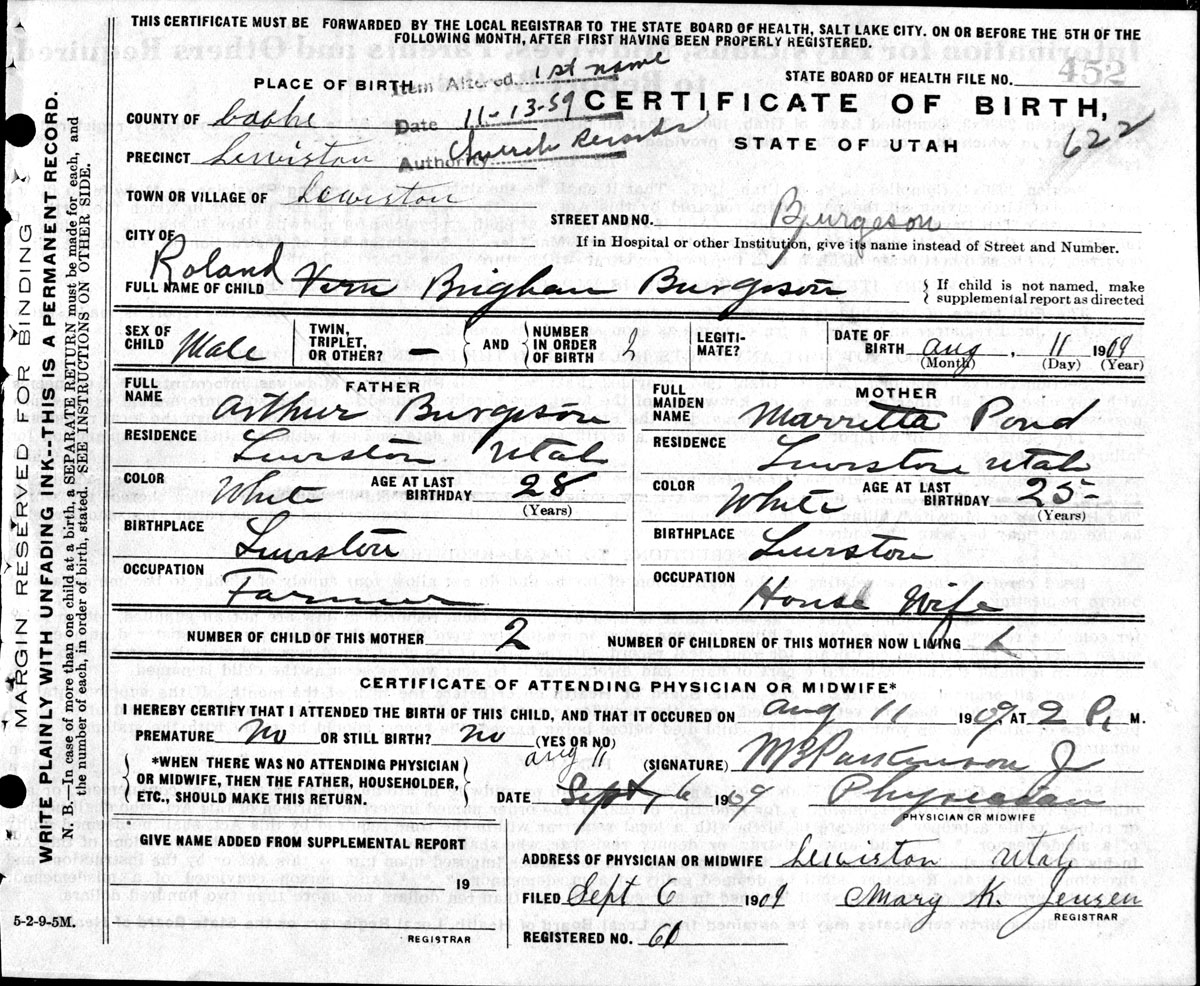 THIS CERTIFICATE MUST BE FORWARDED BY THE LOCAL REGISTRAR TO THE STATE BOARD OF HEALTH, SALT LAKE CITY. ON OR BEFORE THE 5TH OF THE
FOLLOWING MONTH, AFTER FIRST HAVING BEEN PROPERLY REGISTERED.
PLACE OF BIRTH Item Altered 1st name STATE BOARD OF HEALTH FILE NO. 452
COUNTY OF Cache Date 11-13-59 CERTIFICATE OF BIRTH,
PRECINCT Lewiston Authority Church Records STATE OF UTAH 622
TOWN OR VILLAGE OF Lewiston
STREET AND NO. Burgeson
CITY OF If in Hospital or other Institution, give its name instead of Street and Number.
Roland
FULL NAME OF CHILD Vern Brigham Burgeson { If child is not named, make
supplemental report as directed
SEX OF CHILD Male TWIN, TRIPLET, OR OTHER? — { AND } NUMBER IN ORDER OF BIRTH LEGITI-MATE? DATE OF BIRTH Aug, 11 1909
(Month) (Day) (Year)
FATHER MOTHER
FULL NAME Arthur Burgeson FULL MAIDEN NAME Marritta Pond
RESIDENCE Lewiston Utah RESIDENCE Lewiston Utah
COLOR White AGE AT LAST BIRTHDAY 28 (Years) COLOR White AGE AT LAST BIRTHDAY 25 (Years)
BIRTHPLACE Lewiston BIRTHPLACE Lewiston
OCCUPATION Farmer OCCUPATION House Wife
NUMBER OF CHILD OF THIS MOTHER 2 NUMBER OF CHILDREN OF THIS MOTHER NOW LIVING
CERTIFICATE OF ATTENDING PHYSICIAN OR MIDWIFE*
I HEREBY CERTIFY THAT I ATTENDED THE BIRTH OF THIS CHILD, AND THAT IT OCCURED ON Aug 11 1909, AT 2 P. M.
PREMATURE No OR STILL BIRTH? no (YES OR NO)
Aug 11 (SIGNATURE) Parkinson Jr
*WHEN THERE WAS NO ATTENDING PHYSICIAN
OR MIDWIFE, THEN THE FATHER, HOUSEHOLDER,
ETC., SHOULD MAKE THIS RETURN.
DATE Sept 6 1909 Physician
PHYSICIAN OR MIDWIFE
GIVE NAME ADDED FROM SUPPLEMENTAL REPORT
ADDRESS OF PHYSICIAN OR MIDWIFE Lewiston Utah
19 FILED Sept 6 1909 Mary K. Jensen
REGISTRAR
5-2-9-5M. REGISTRAR REGISTERED NO. 60
MARGIN RESERVED FOR BINDING
WRITE PLAINLY WITH UNFADING INK--THIS IS A PERMANENT RECORD.
N. B.—In case of more than one child at a birth, SEPARATE RETURN must be made for each, and
the number of each, in order of birth, stated. SEE INSTRUCTIONS ON OTHER SIDE.